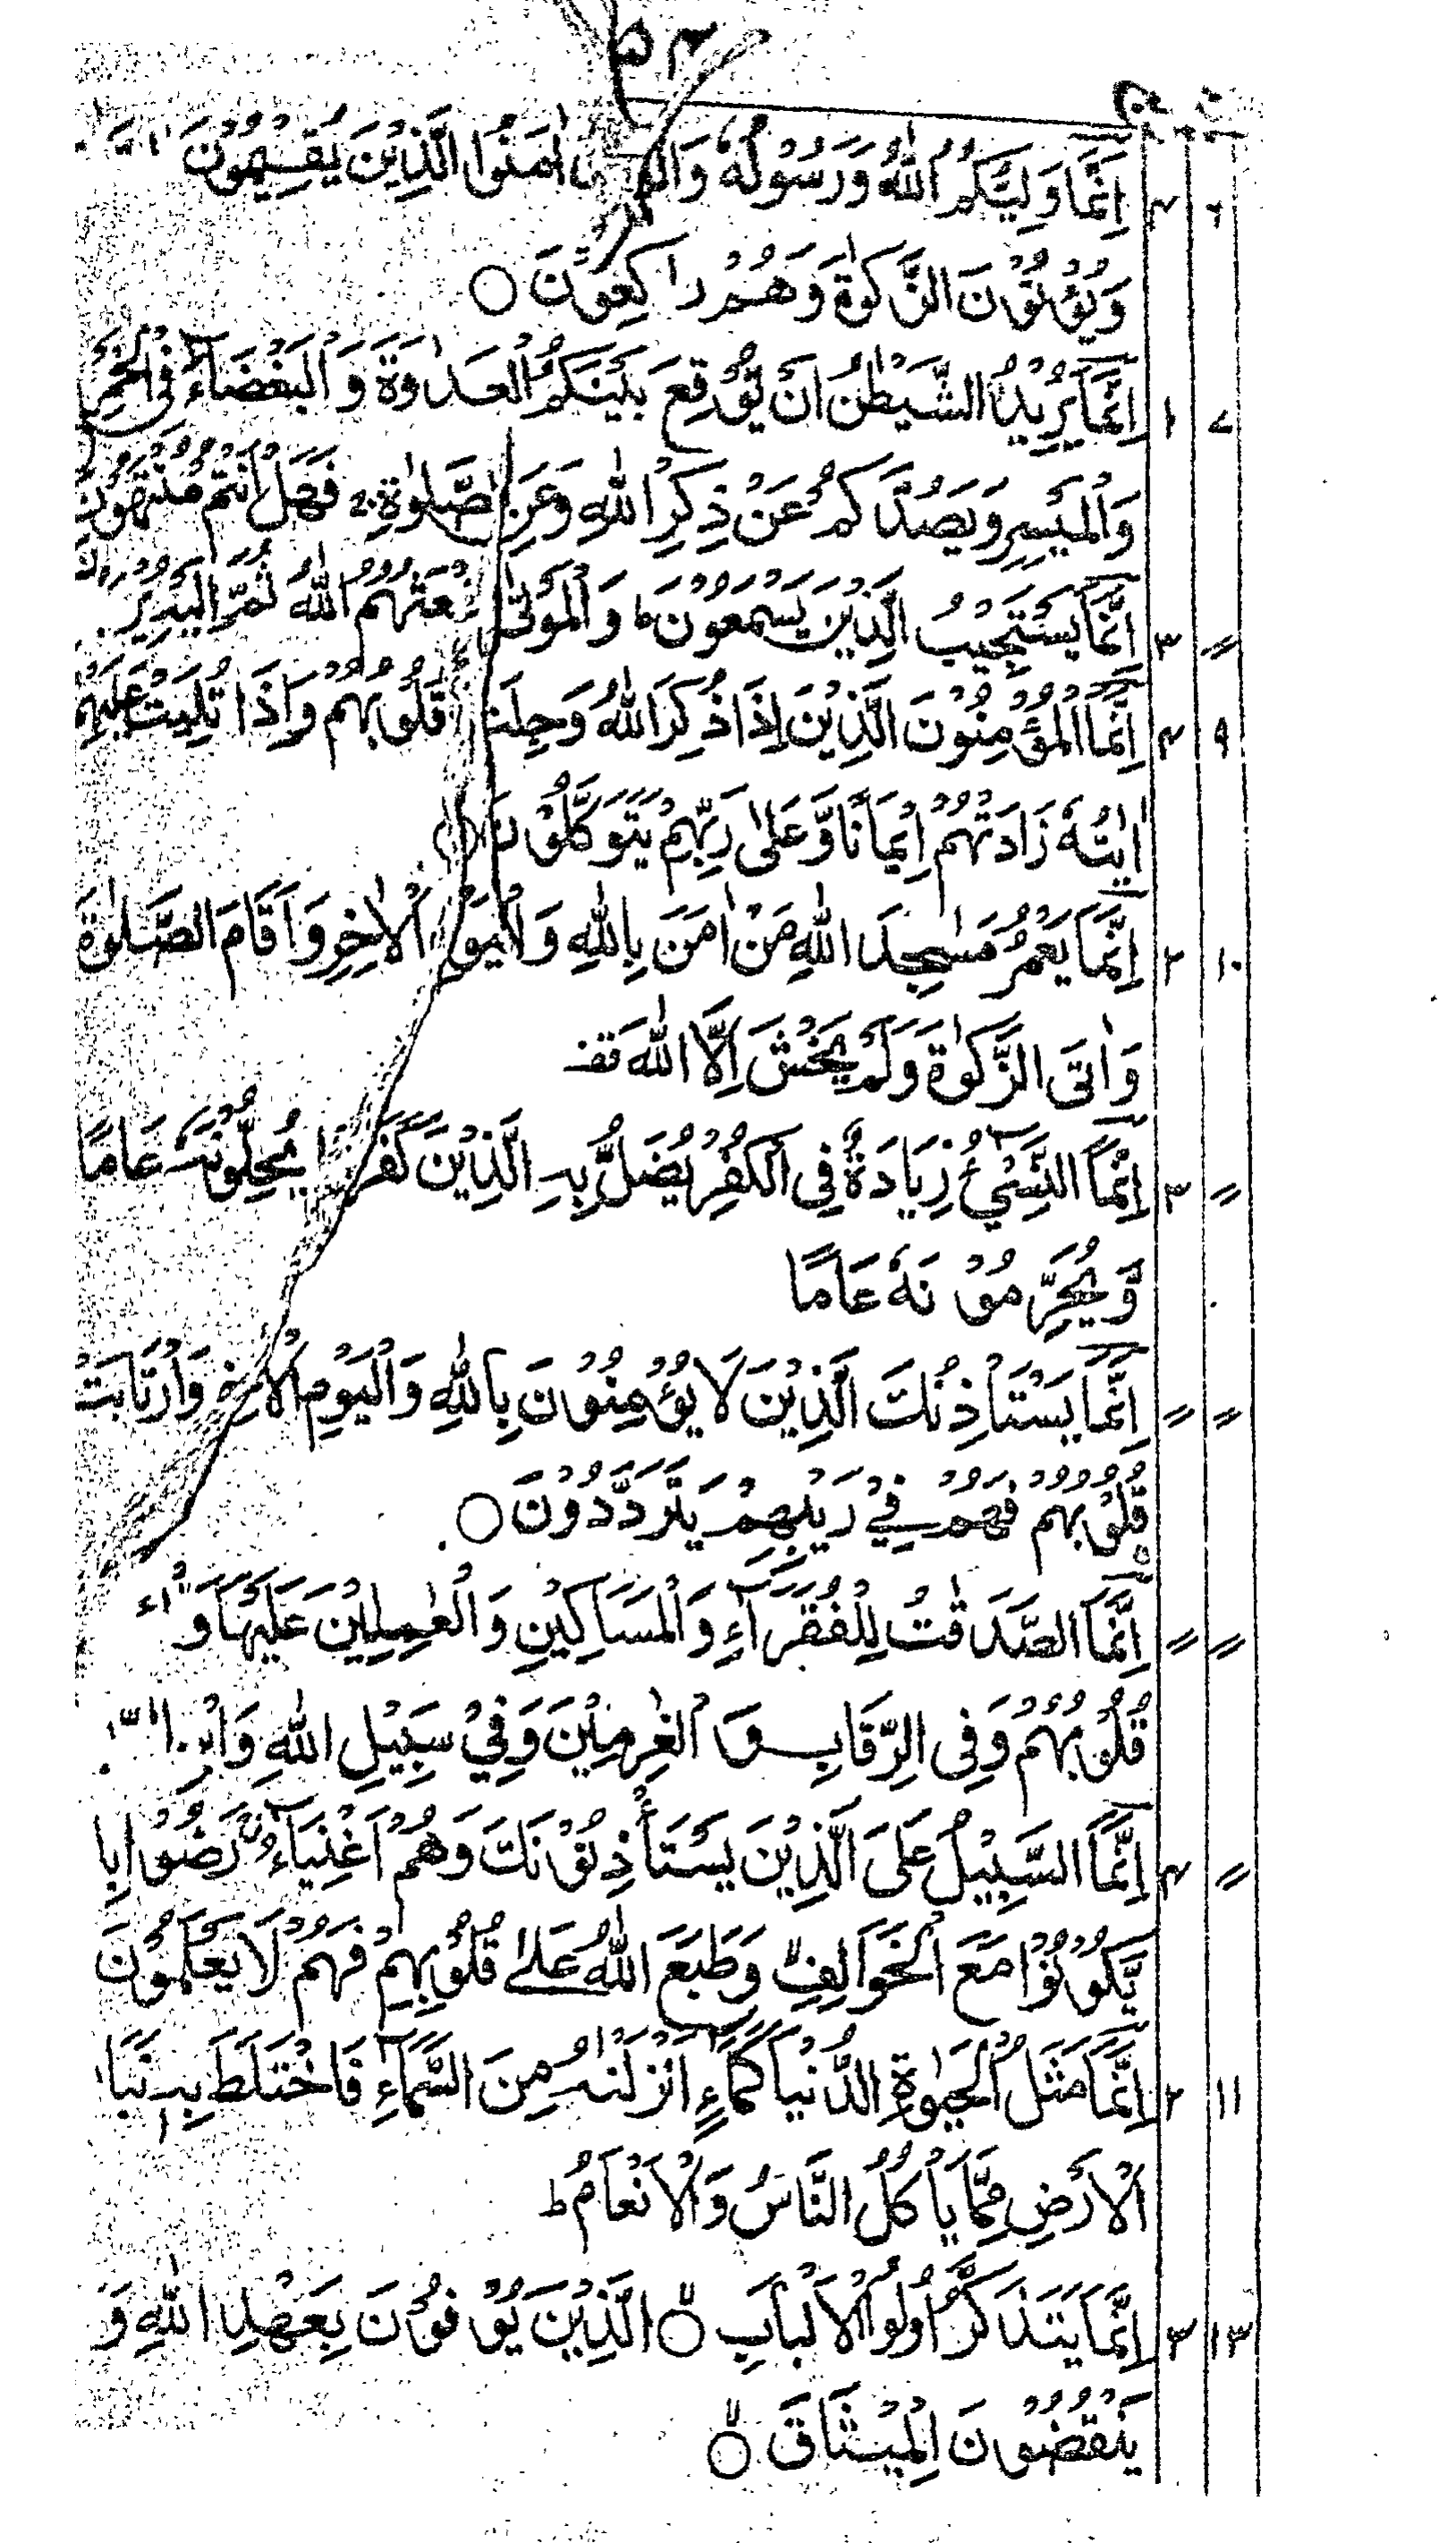 ۶ ۴ اِنَّمَا وَلِيُّكُمُ اللّٰهُ وَرَسُوْلُهٗ اٰمَنُوا الَّذِيْنَ يُقِيْمُوْنَ
وَيُؤْتُوْنَ الزَّكٰوةَ وَهُمْ رَاكِعُوْنَ ○
۷ ۱ اِنَّمَا يُرِيْدُ الشَّيْطٰنُ اَنْ يُّوْقِعَ بَيْنَكُمُ الْعَدَاوَةَ وَالْبَغْضَآءَ فِى الْخَمْرِ
وَالْمَيْسِرِ وَيَصُدَّكُمْ عَنْ ذِكْرِ اللّٰهِ وَعَنِ الصَّلٰوةِ ۚ فَهَلْ اَنْتُمْ مُّنْتَهُوْنَ
〃 ۳ اِنَّمَا يَسْتَجِيْبُ الَّذِيْنَ يَسْمَعُوْنَ ؕ وَالْمَوْتٰى يَبْعَثُهُمُ اللّٰهُ ثُمَّ اِلَيْهِ
۹ ۴ اِنَّمَا الْمُؤْمِنُوْنَ الَّذِيْنَ اِذَا ذُكِرَ اللّٰهُ وَجِلَتْ قُلُوْبُهُمْ وَاِذَا تُلِيَتْ عَلَيْهِمْ
اٰيٰتُهٗ زَادَتْهُمْ اِيْمَانًا وَّعَلٰى رَبِّهِمْ يَتَوَكَّلُوْنَ ○
۱۰ ۲ اِنَّمَا يَعْمُرُ مَسٰجِدَ اللّٰهِ مَنْ اٰمَنَ بِاللّٰهِ وَالْيَوْمِ الْاٰخِرِ وَاَقَامَ الصَّلٰوةَ
وَاٰتَى الزَّكٰوةَ وَلَمْ يَخْشَ اِلَّا اللّٰهَ قف
〃 ۳ اِنَّمَا النَّسِىْٓءُ زِيَادَةٌ فِى الْكُفْرِ يُضَلُّ بِهِ الَّذِيْنَ كَفَرُوْا يُحِلُّوْنَهٗ عَامًا
وَّيُحَرِّمُوْنَهٗ عَامًا
〃 〃 اِنَّمَا يَسْتَاْذِنُكَ الَّذِيْنَ لَا يُؤْمِنُوْنَ بِاللّٰهِ وَالْيَوْمِ الْاٰخِرِ وَارْتَابَتْ
قُلُوْبُهُمْ فَهُمْ فِيْ رَيْبِهِمْ يَتَرَدَّدُوْنَ ○
〃 〃 اِنَّمَا الصَّدَقٰتُ لِلْفُقَرَآءِ وَالْمَسَاكِيْنِ وَالْعٰمِلِيْنَ عَلَيْهَا وَ
قُلُوْبُهُمْ وَفِى الرِّقَابِ وَالْغٰرِمِيْنَ وَفِيْ سَبِيْلِ اللّٰهِ
〃 ۴ اِنَّمَا السَّبِيْلُ عَلَى الَّذِيْنَ يَسْتَأْذِنُوْنَكَ وَهُمْ اَغْنِيَآءُ ۚ رَضُوْا بِا
يَّكُوْنُوْا مَعَ الْخَوَالِفِ ۙ وَطَبَعَ اللّٰهُ عَلٰى قُلُوْبِهِمْ فَهُمْ لَا يَعْلَمُوْنَ
۱۱ ۲ اِنَّمَا مَثَلُ الْحَيٰوةِ الدُّنْيَا كَمَآءٍ اَنْزَلْنٰهُ مِنَ السَّمَآءِ فَاخْتَلَطَ بِهٖ نَبَا
الْاَرْضِ مِمَّا يَاْكُلُ النَّاسُ وَالْاَنْعَامُ ؕ
۱۳ ۳ اِنَّمَا يَتَذَكَّرُ اُولُوا الْاَلْبَابِ ○ۙ الَّذِيْنَ يُوْفُوْنَ بِعَهْدِ اللّٰهِ وَ
يَنْقُضُوْنَ الْمِيْثَاقَ ○ۙ